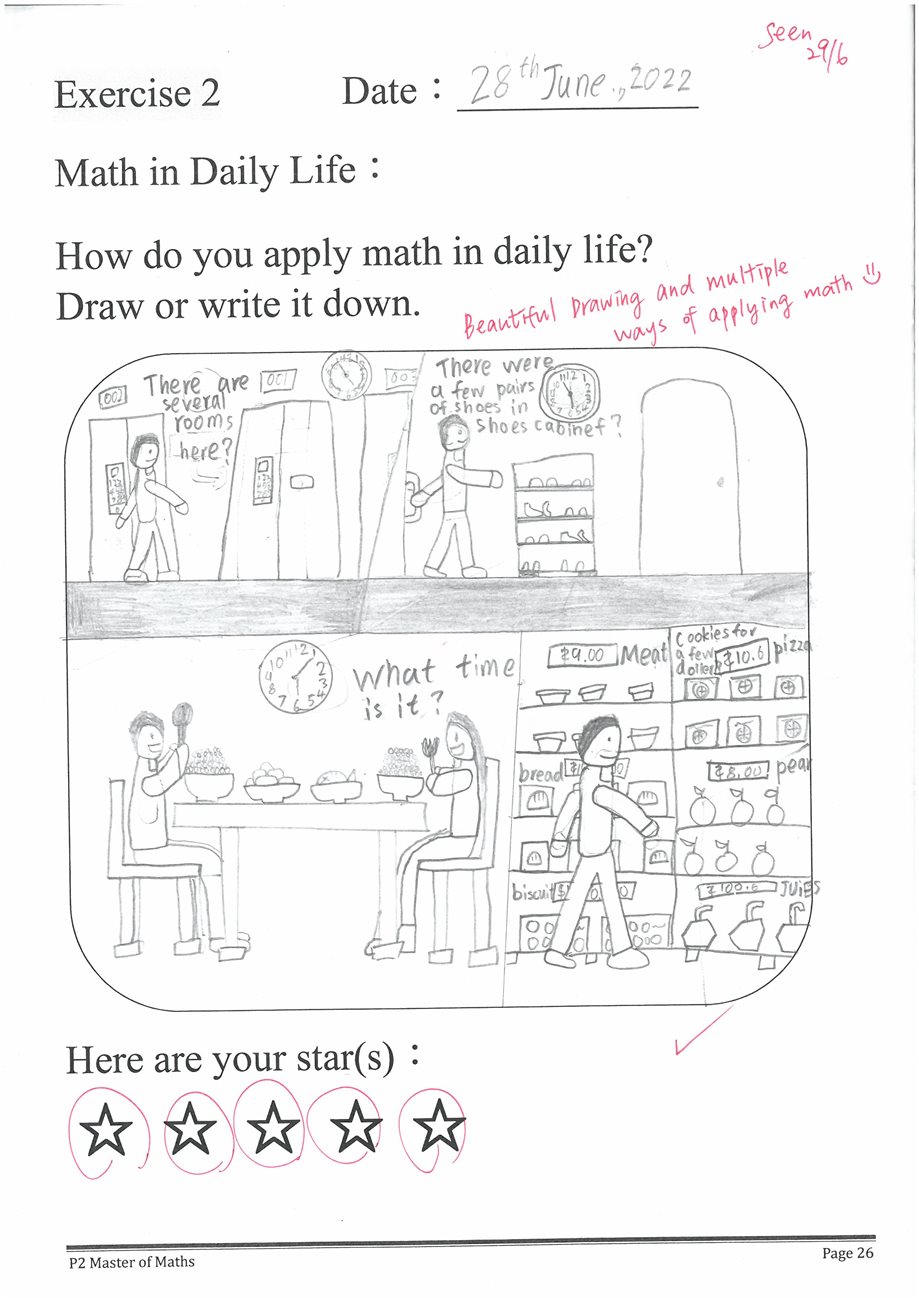 seen
29/6
Exercise 2
Date : 28th June., 2022
Math in Daily Life :
How do you apply math in daily life?
Draw or write it down.
Beautiful Drawing and multiple
ways of applying math
002
There are
several
rooms
here?
001
There were
a few pairs
of shoes in
shoes cabinet?
What time
is it?
12
1
2
3
4
5
6
7
8
9
10
11
$9.00 Meat
Cookies for
a few
dollers
$10.6 pizza
bread
$8.00 pear
biscuit
$100.6 JUiES
Here are your star(s) :
P2 Master of Maths
Page 26